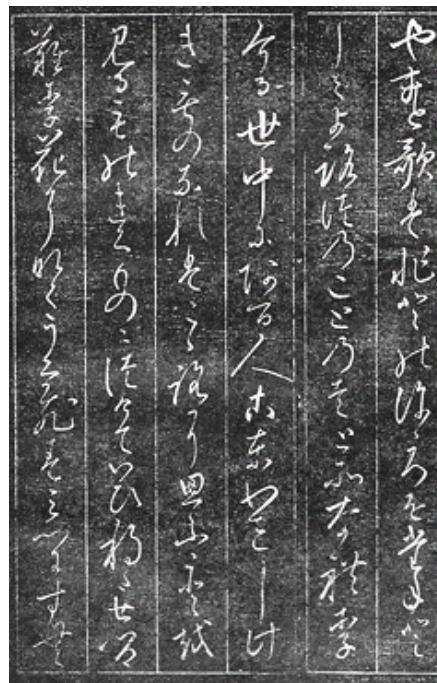 やまと歌はひとのこゝろをたねと
してよろつのことのはとそなれり
ける世中にある人ことわさしけ
きものなれはこゝろに思ふことを
見るものきくものにつけていひ
なり花になくうくひすみつにすむ